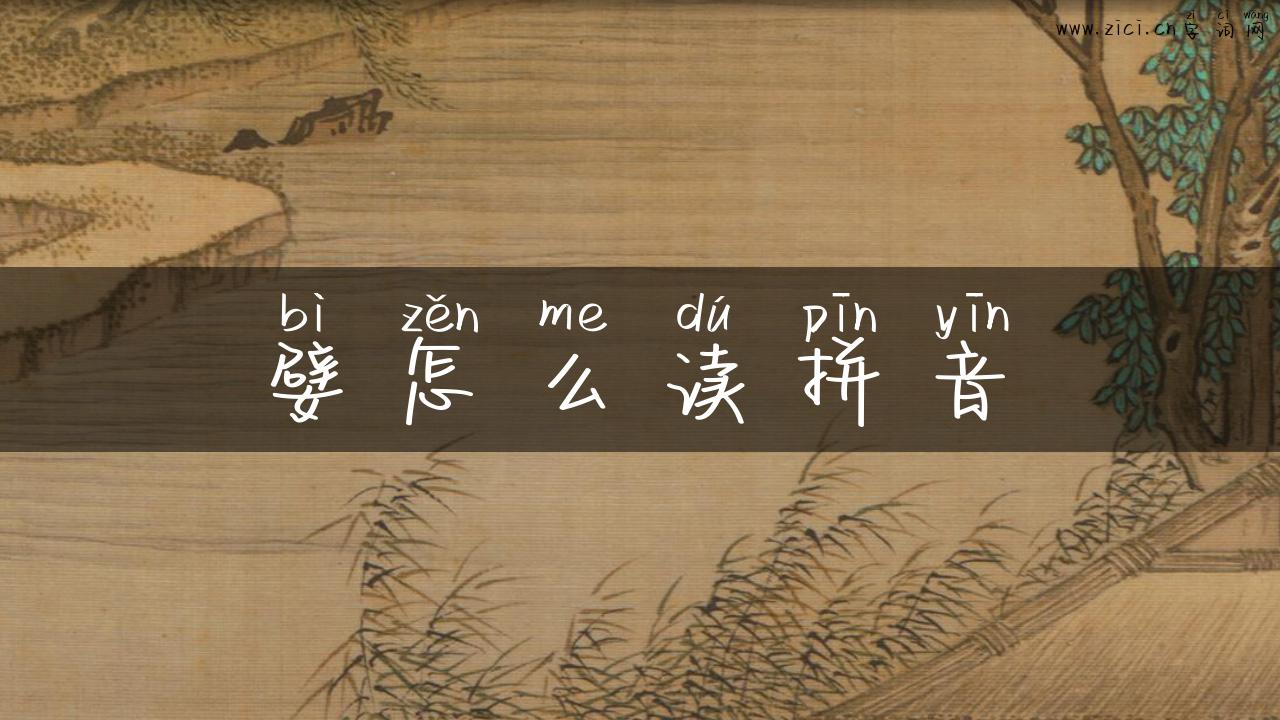 zì cí wǎng
www.zici.cn字词网
bì zěn me dú pīn yīn
嬖怎么读拼音